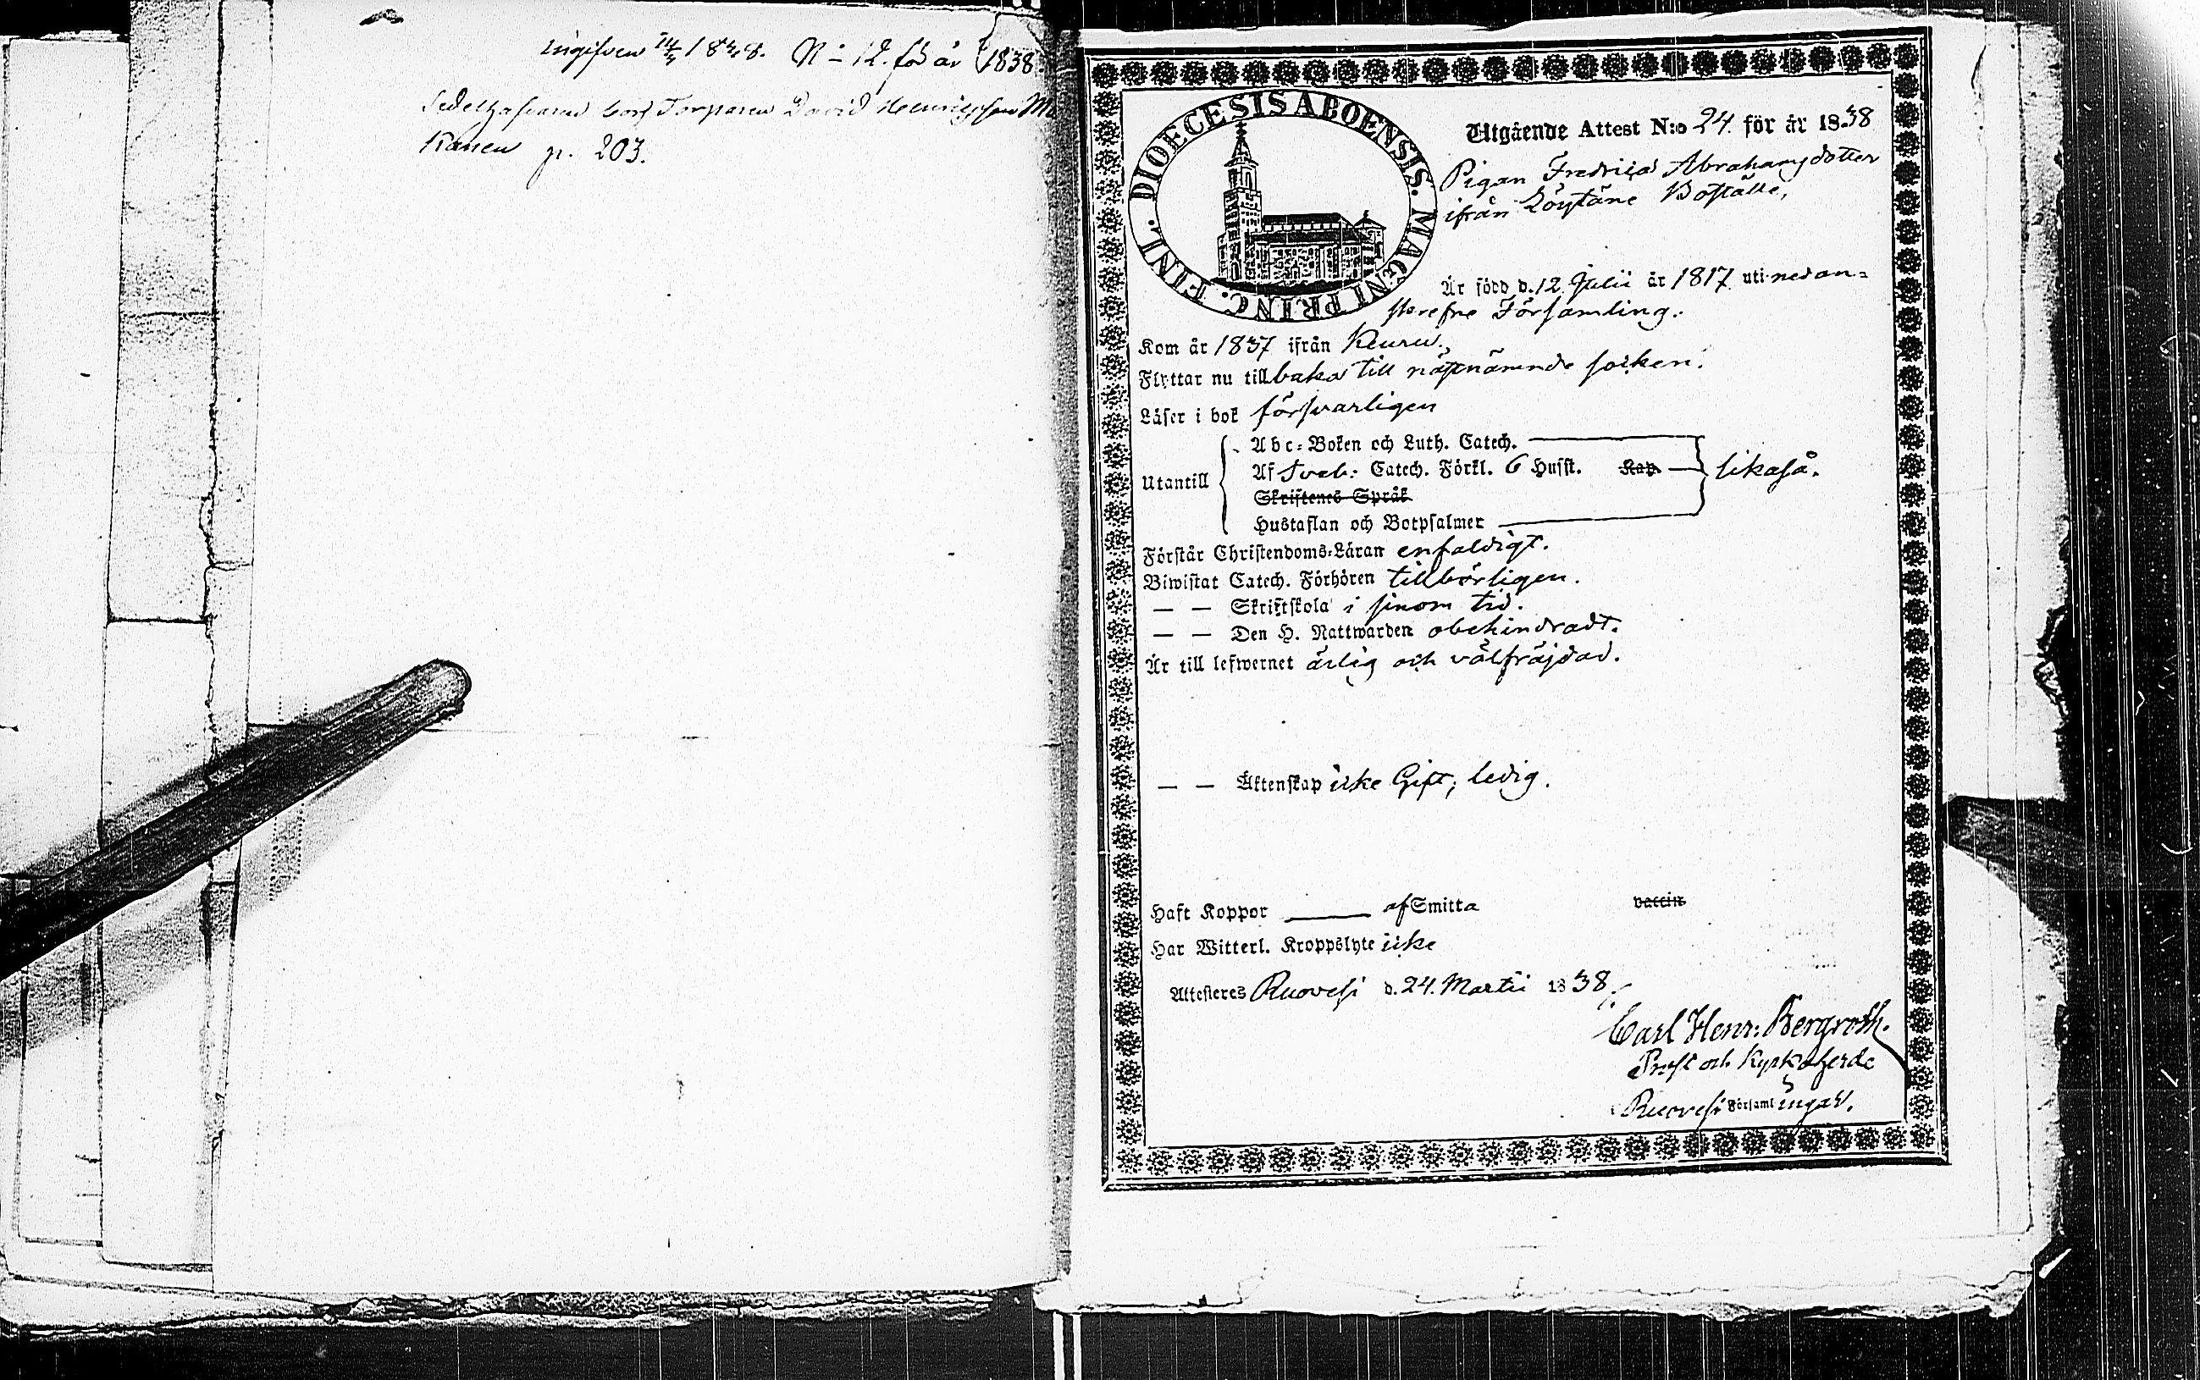 N:o 12. för år 1838
Torparen David Henrichsson
p. 203.
DIOECESIS ABOENSIS. MAGNI PRINC. FINL.
Utgående Attest N:o 24. för år 1838
Pigan Fredrica Abrahamsdotter
ifrån Löytäne Boställe,
Är född d. 12 Julii år 1817 uti nedan=
skrefne Församling.
Kom år 1837 ifrån Keuru.
Flyttar nu tillbaka till nästnämnde socken.
Läser i bok försvarligen
Abc-Boken och Luth. Catech.
Utantill Af Sveb: Catech. Förkl. 6 Husst. Kap. likaså.
Skriftenes Språk
Hustaflan och Botpsalmer
Förstår Christendoms-Läran enfaldigt.
Biwistat Catech. Förhören tillbörligen.
— — Skriftskola i sinom tid.
— — Den H. Nattwarden obehindradt.
Är till lefwernet ärlig och välfräjdad.
— — Äktenskap icke Gift; ledig.
Haft Koppor af Smitta vaccin
Har Witterl. Kroppslyte icke
Attesteres Ruovesi d. 24. Martii 1838.
Carl Henr: Bergroth.
Prost och Kyrkoherde
Ruovesi Församlingar.